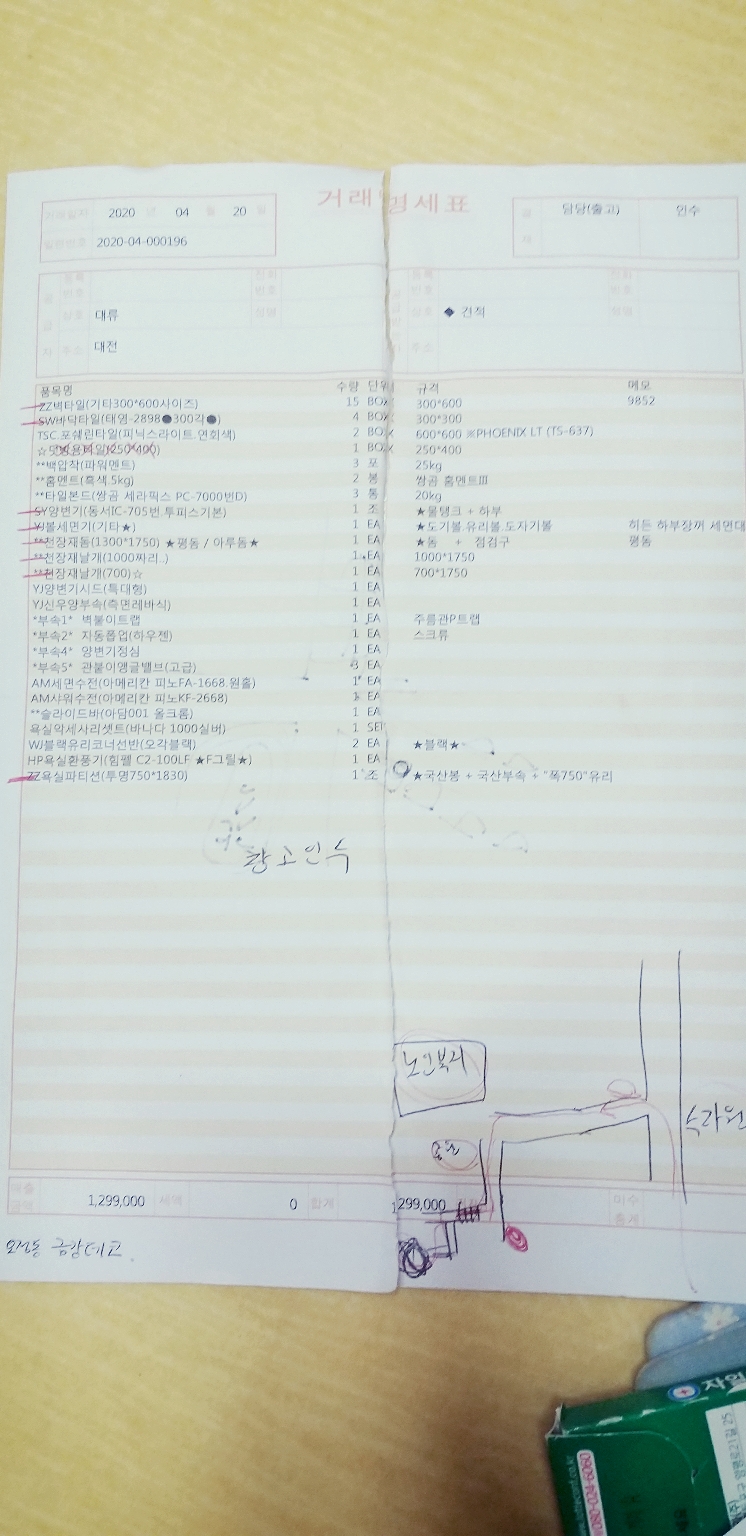 거래명세표
거래일자 2020 년 04 월 20 일
담당(출고) 인수
일련번호 2020-04-000196
등록번호 전화번호 등록번호 전화번호
상호 대류 성명 상호 ◆ 견적 성명
주소 대전 주소
품목명 수량 단위 규격 메모
ZZ벽타일(기타300*600사이즈) 15 BOX 300*600 9852
SW바닥타일(태영-2898●300각●) 4 BOX 300*300
TSC.포쉐린타일(피닉스라이트.면회색) 2 BOX 600*600 ※PHOENIX LT (TS-637)
1 BOX 250*400
**백압착(파워멘트) 3 포 25kg
**홈멘트(흑색.5kg) 2 봉 쌍곰 홈멘트Ⅲ
**타일본드(쌍곰 세라픽스 PC-7000번D) 3 통 20kg
SY양변기(동서IC-705번.투피스기본) 1 조 ★물탱크 + 하부
YJ볼세면기(기타★) 1 EA ★도기볼.유리볼.도자기볼 히든 하부장꺼 세면대
**천장재돔(1300*1750) ★평돔 / 아루돔★ 1 EA ★돔 + 점검구 평돔
**천장재날개(1000짜리..) 1 EA 1000*1750
**천장재날개(700)☆ 1 EA 700*1750
YJ양변기시드(특대형) 1 EA
YJ신우양부속(측면레바식) 1 EA
*부속1* 벽붙이트랩 1 EA 주름관P트랩
*부속2* 자동폽업(하우젠) 1 EA 스크류
*부속4* 양변기정심 1 EA
*부속5* 관붙이앵글밸브(고급) 3 EA
AM세면수전(아메리칸 피노FA-1668.원홀) 1 EA
AM샤워수전(아메리칸 피노KF-2668) 1 EA
**슬라이드바(아담001 올크롬) 1 EA
욕실악세사리셋트(바나다 1000실버) 1 SET
WJ블랙유리코너선반(오각블랙) 2 EA ★블랙★
HP욕실환풍기(힘펠 C2-100LF ★F그릴★) 1 EA
ZZ욕실파티션(투명750*1830) 1 조 ★국산봉 + 국산부속 + "폭750"유리
창고인수
노인복지
매출금액 1,299,000 세액 0 합계 1,299,000 미수총계
오정동 금강데코.
자일
0909-420-080